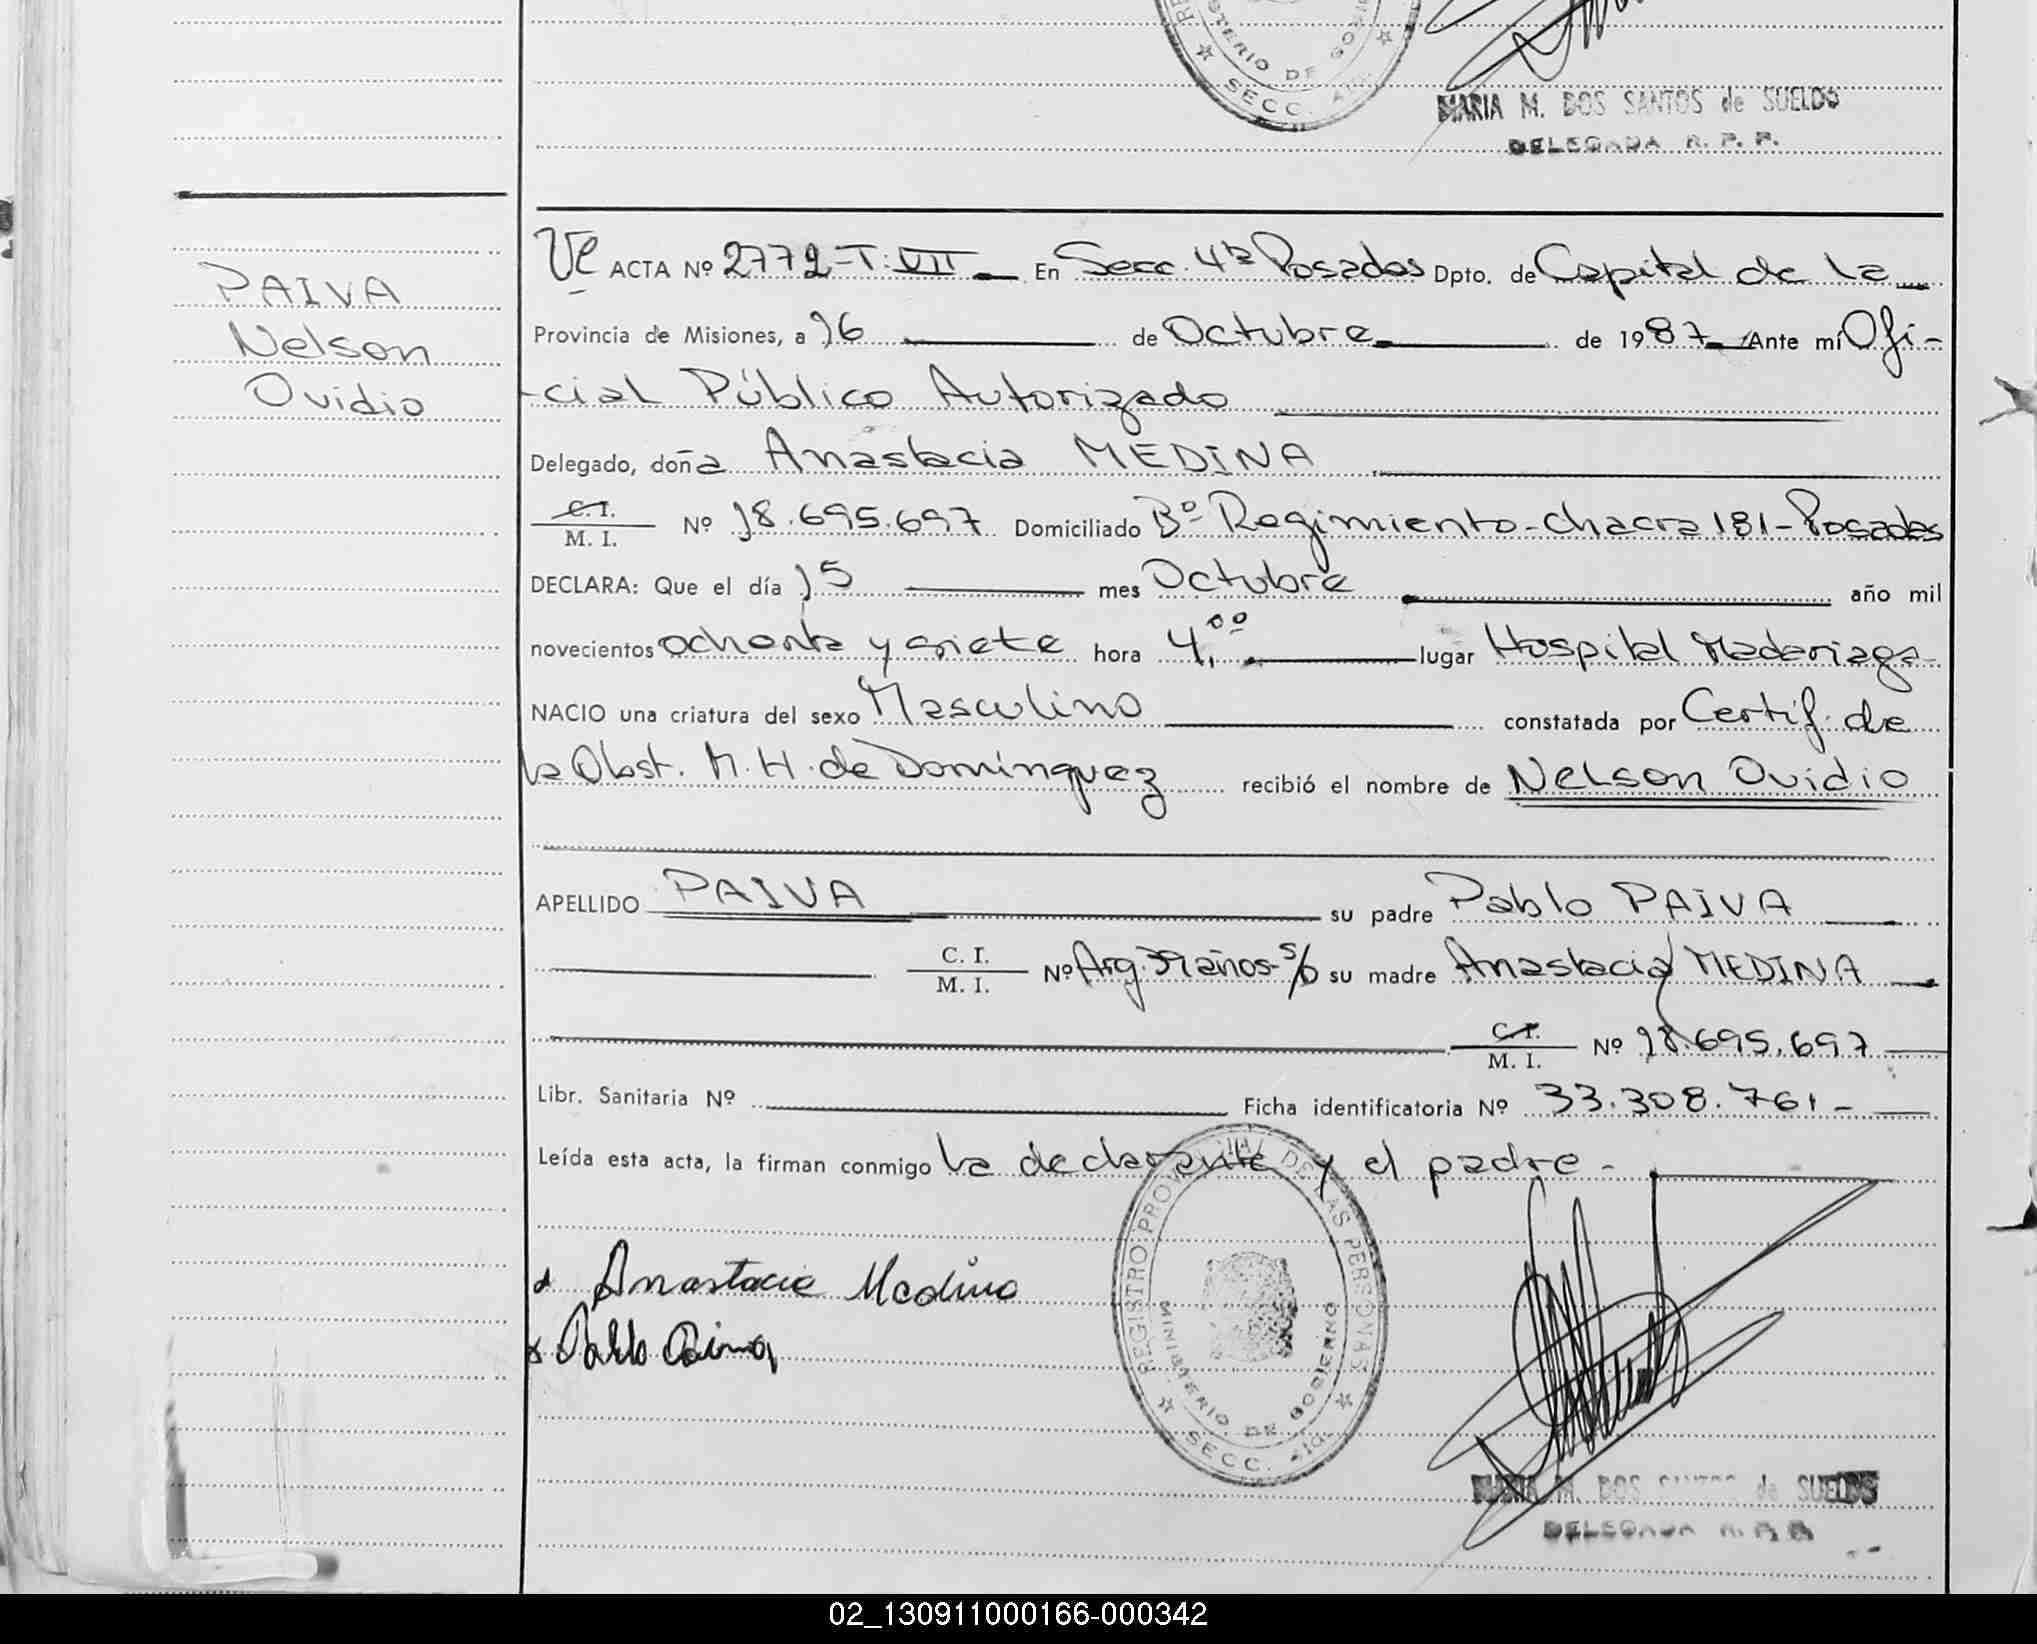 MINISTERIO DE GOBIERNO
SECC.
MARIA M. DOS SANTOS de SUELDO
DELEGADA R. P. P.
PAIVA
Nelson
Ovidio
ACTA Nº 2772-T:VII En Secc. 4ta Posadas Dpto. de Capital de la
Provincia de Misiones, a 16 de Octubre de 1987 Ante mí Ofi-
-cial Público Autorizado
Delegado, doña Anastacia MEDINA
C. I.
M. I. Nº 18.695.697 Domiciliado Bº Regimiento-chacra 181-Posadas
DECLARA: Que el día 15 mes Octubre año mil
novecientos ochenta y siete hora 4,00 lugar Hospital Madariaga
NACIO una criatura del sexo Masculino constatada por Certif. de
la Obst. M. H. de Domínguez recibió el nombre de Nelson Ovidio
APELLIDO PAIVA su padre Pablo PAIVA
C. I.
M. I. Nº Arg. 39 años-s/D su madre Anastacia MEDINA
C. I.
M. I. Nº 18.695.697
Libr. Sanitaria Nº Ficha identificatoria Nº 33.308.761-
Leída esta acta, la firman conmigo la declarante y el padre-
REGISTRO PROVINCIAL DE LAS PERSONAS
MINISTERIO DE GOBIERNO
SECC. 4ta.
Anastacia Medina
Pablo Paiva
MARIA M. DOS SANTOS de SUELDO
DELEGADA R. P. P.
02_130911000166-000342